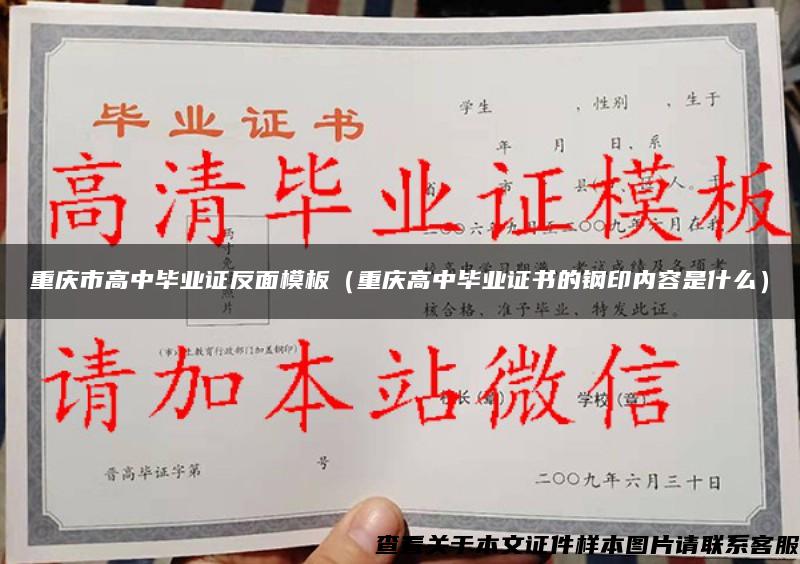 毕业证书
学生　　　，性别　　，生于
年　月　日、系
高清毕业证模板
省　市　县　人。于
二〇〇六年九月至二〇〇九年六月在我
两寸免冠照片
重庆市高中毕业证反面模板（重庆高中毕业证书的钢印内容是什么）
核合格、准予毕业、特发此证。
教育行政部门加盖钢印)
请加本站微信
校长(章)　学校(章)
晋高毕证字第　　号
二〇〇九年六月三十日
查看关于本文证件样本图片请联系客服